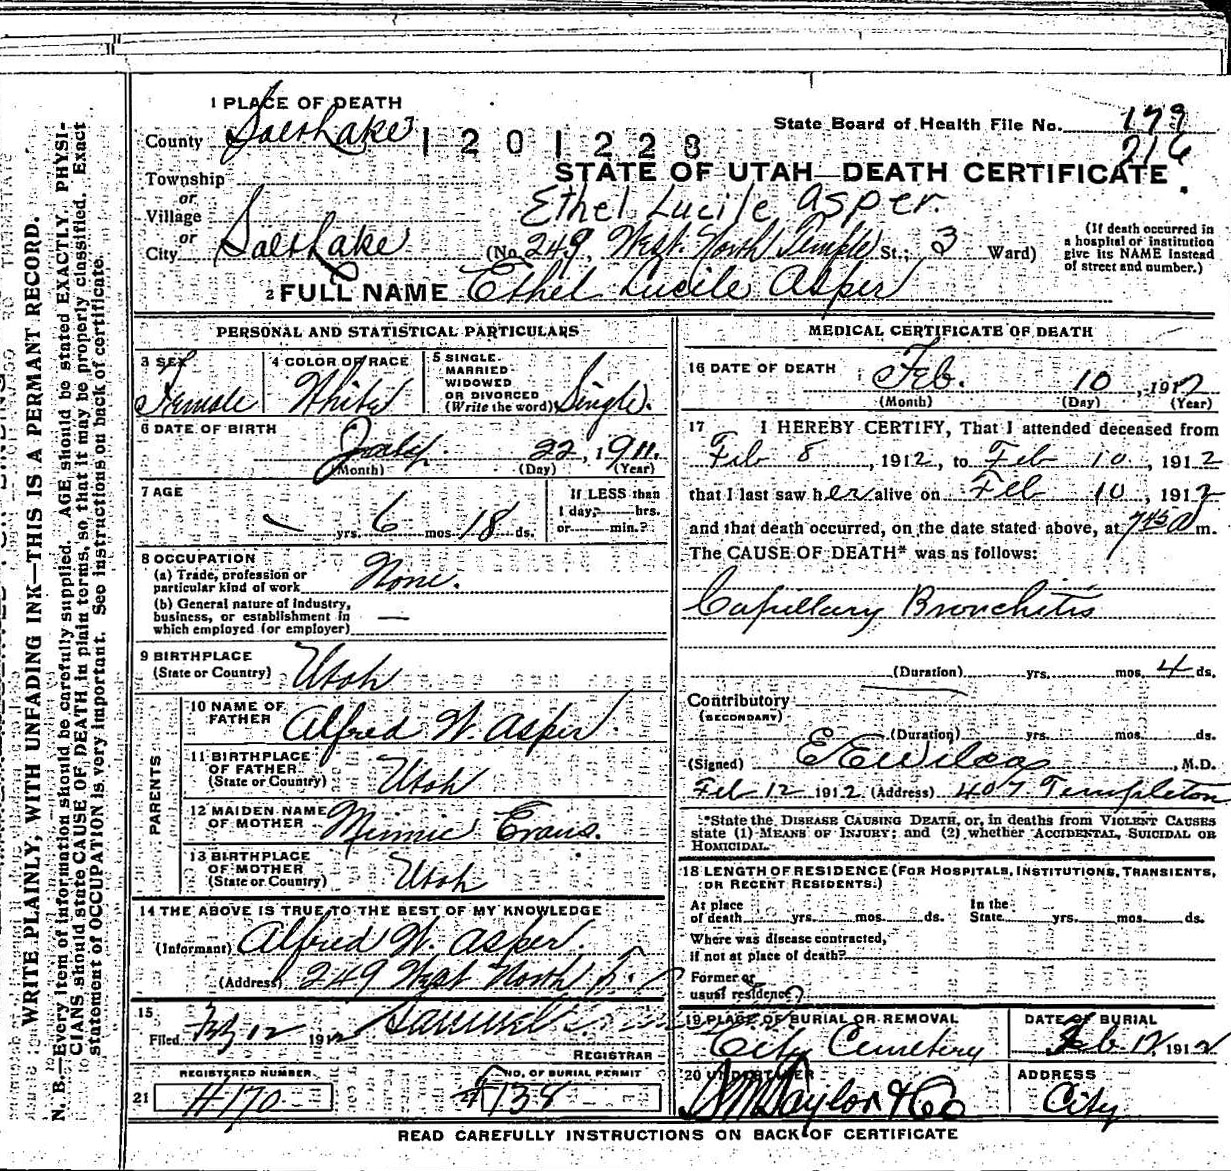 1 PLACE OF DEATH
County Salt Lake
1201228
State Board of Health File No. 179
216
STATE OF UTAH—DEATH CERTIFICATE.
Township
or
Village
or
City Salt Lake
Ethel Lucile Asper.
(No. 249, West North Temple St.; 3 Ward)
(If death occurred in
a hospital or institution
give its NAME instead
of street and number.)
2 FULL NAME Ethel Lucile Asper
PERSONAL AND STATISTICAL PARTICULARS
3 SEX
Female
4 COLOR OR RACE
White
5 SINGLE.
MARRIED
WIDOWED
OR DIVORCED
(Write the word) Single.
6 DATE OF BIRTH
July 22, 1911.
(Month) (Day) (Year)
7 AGE
— yrs. 6 mos 18 ds.
If LESS than
1 day, hrs.
or min.?
8 OCCUPATION
(a) Trade, profession or
particular kind of work None.
(b) General nature of industry,
business, or establishment in
which employed (or employer) —
9 BIRTHPLACE
(State or Country) Utah
PARENTS
10 NAME OF
FATHER Alfred W. Asper
11 BIRTHPLACE
OF FATHER
(State or Country) Utah
12 MAIDEN NAME
OF MOTHER Minnie Evans.
13 BIRTHPLACE
OF MOTHER
(State or Country) Utah
14 THE ABOVE IS TRUE TO THE BEST OF MY KNOWLEDGE
(Informant) Alfred W. Asper.
(Address) 249 West North
15
Filed 12 1912 Samuel
REGISTRAR
REGISTERED NUMBER.
21 H170
NO. OF BURIAL PERMIT
#738
MEDICAL CERTIFICATE OF DEATH
16 DATE OF DEATH
Feb. 10, 1912
(Month) (Day) (Year)
17 I HEREBY CERTIFY, That I attended deceased from
Feb 8, 1912, to Feb 10, 1912
that I last saw her alive on Feb 10, 1912
and that death occurred, on the date stated above, at 745 A m.
The CAUSE OF DEATH* was as follows:
Capillary Bronchitis
(Duration) yrs. mos. 4 ds.
Contributory
(SECONDARY)
(Duration) yrs. mos. ds.
(Signed) E E Wilcox, M.D.
Feb 12 1912 (Address) 407 Templeton
*State the DISEASE CAUSING DEATH, or, in deaths from VIOLENT CAUSES
state (1) MEANS OF INJURY; and (2) whether ACCIDENTAL, SUICIDAL OR
HOMICIDAL.
18 LENGTH OF RESIDENCE (FOR HOSPITALS, INSTITUTIONS, TRANSIENTS,
OR RECENT RESIDENTS.)
At place
of death yrs. mos. ds.
In the
State yrs. mos. ds.
Where was disease contracted,
if not at place of death?
Former or
usual residence?
19 PLACE OF BURIAL OR REMOVAL
City Cemetery
DATE OF BURIAL
Feb 12, 1912
20 UNDERTAKER
S M Taylor & Co
ADDRESS
City
READ CAREFULLY INSTRUCTIONS ON BACK OF CERTIFICATE
WRITE PLAINLY, WITH UNFADING INK—THIS IS A PERMANT RECORD.
N. B.—Every item of information should be carefully supplied. AGE should be stated EXACTLY. PHYSI-
CIANS should state CAUSE OF DEATH in plain terms, so that it may be properly classified. Exact
statement of OCCUPATION is very important. See instructions on back of certificate.